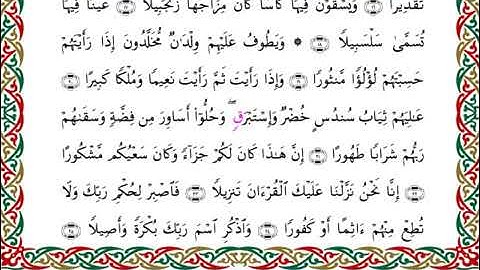 تَقْدِيرًا ۝١٦ وَيُسْقَوْنَ فِيهَا كَأْسًا كَانَ مِزَاجُهَا زَنجَبِيلًا ۝١٧ عَيْنًا فِيهَا
تُسَمَّىٰ سَلْسَبِيلًا ۝١٨ ۞ وَيَطُوفُ عَلَيْهِمْ وِلْدَٰنٌ مُّخَلَّدُونَ إِذَا رَأَيْتَهُمْ
حَسِبْتَهُمْ لُؤْلُؤًا مَّنثُورًا ۝١٩ وَإِذَا رَأَيْتَ ثَمَّ رَأَيْتَ نَعِيمًا وَمُلْكًا كَبِيرًا ۝٢٠
عَٰلِيَهُمْ ثِيَابُ سُندُسٍ خُضْرٌ وَإِسْتَبْرَقٌ ۖ وَحُلُّوٓا۟ أَسَاوِرَ مِن فِضَّةٍ وَسَقَىٰهُمْ
رَبُّهُمْ شَرَابًا طَهُورًا ۝٢١ إِنَّ هَٰذَا كَانَ لَكُمْ جَزَآءً وَكَانَ سَعْيُكُم مَّشْكُورًا
۝٢٢ إِنَّا نَحْنُ نَزَّلْنَا عَلَيْكَ ٱلْقُرْءَانَ تَنزِيلًا ۝٢٣ فَٱصْبِرْ لِحُكْمِ رَبِّكَ وَلَا
تُطِعْ مِنْهُمْ ءَاثِمًا أَوْ كَفُورًا ۝٢٤ وَٱذْكُرِ ٱسْمَ رَبِّكَ بُكْرَةً وَأَصِيلًا ۝٢٥